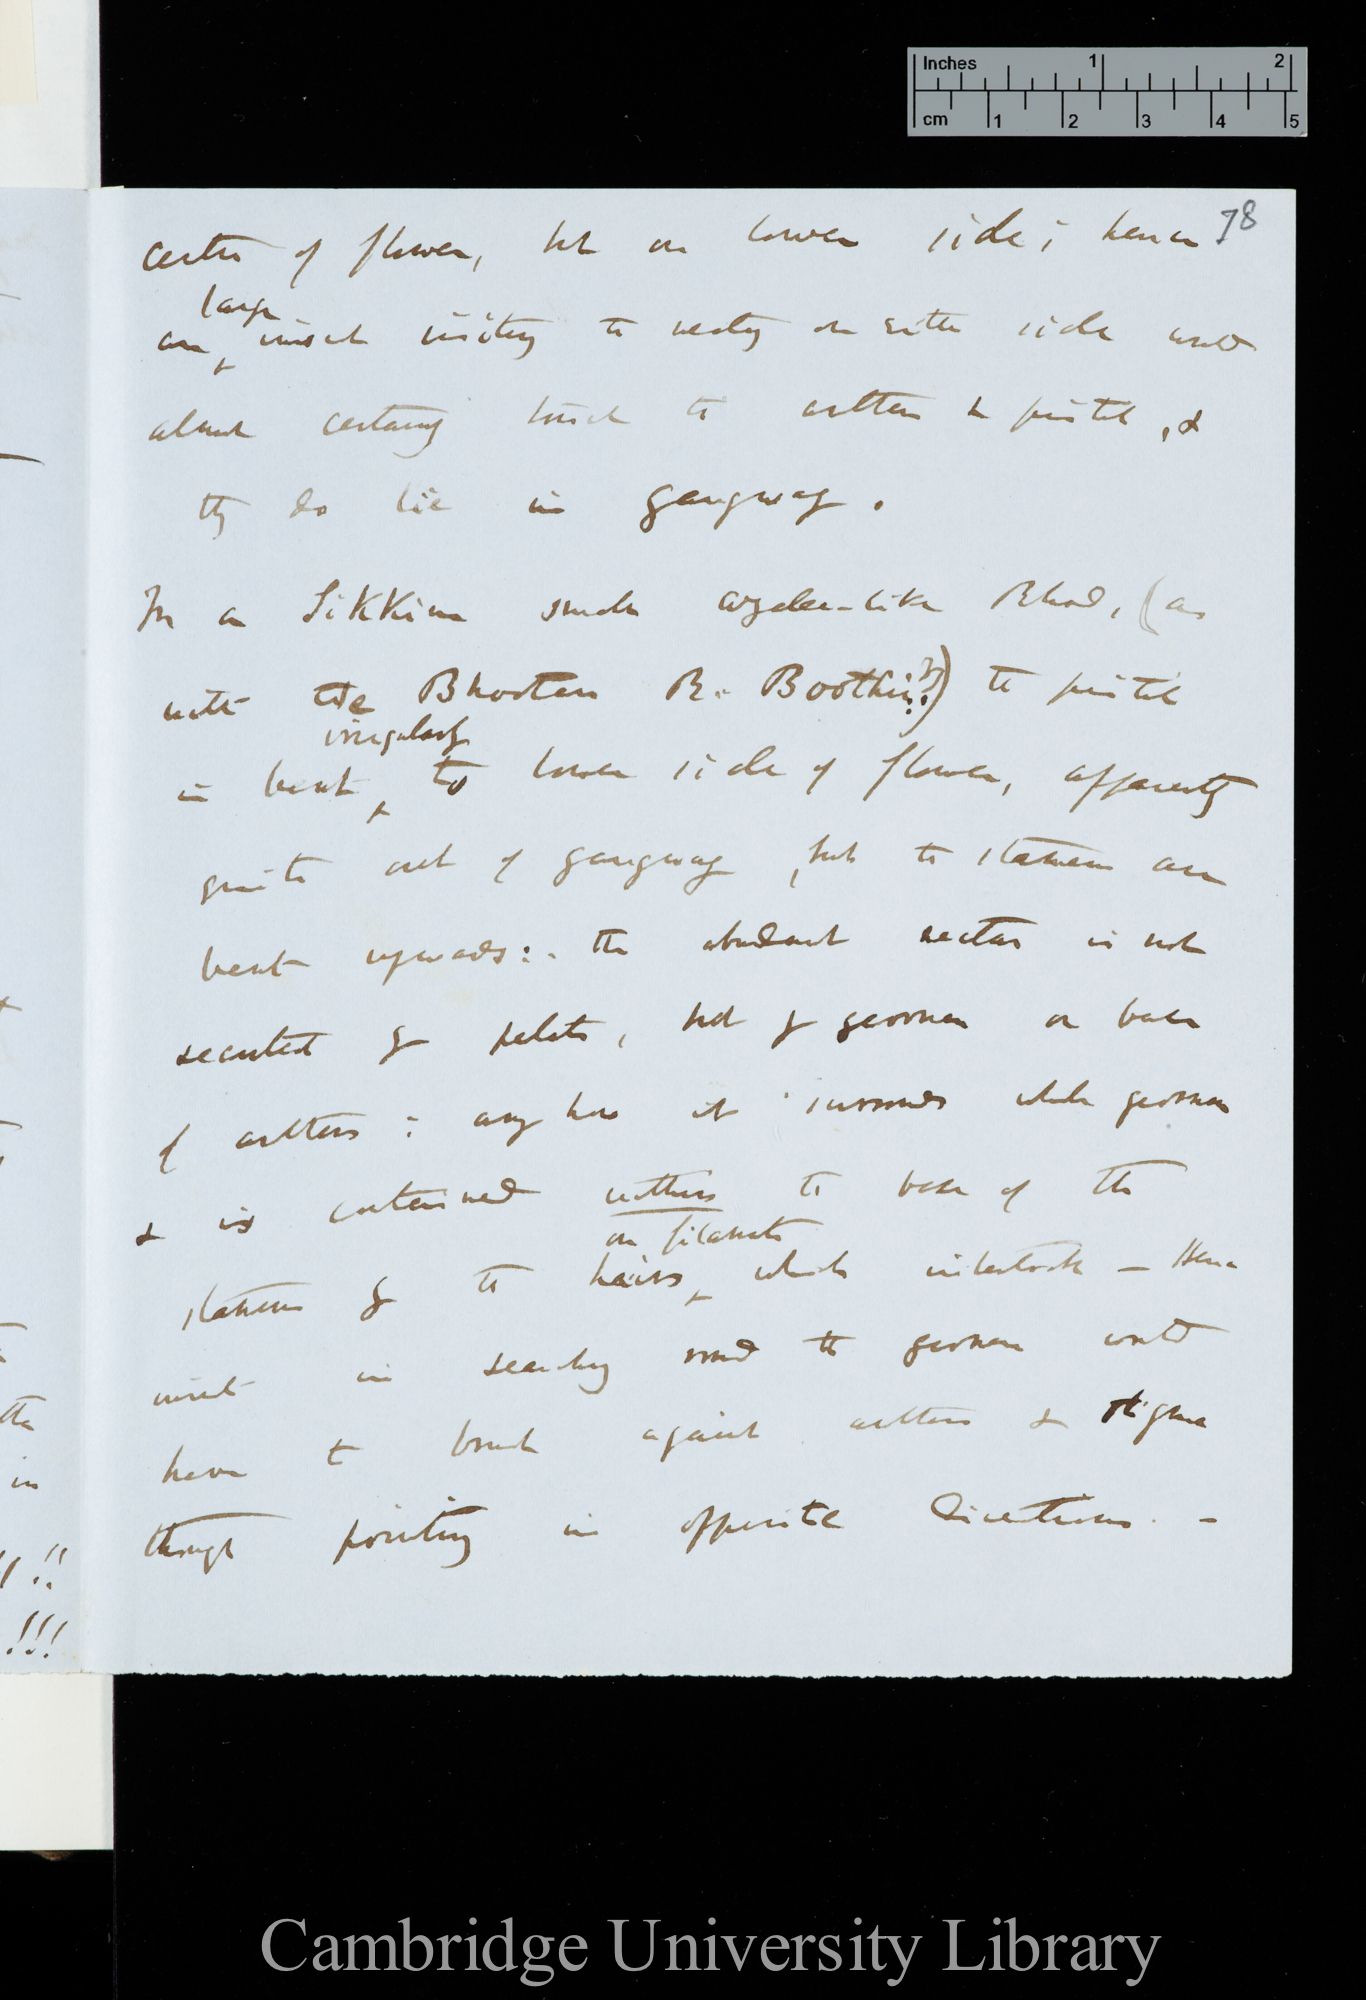 Inches 1 2
cm 1 2 3 4 5
78
centre of flower, but on lower side; hence
large
any insect visiting the nectary on either side would
almost certainly touch the anthers & pistil, &
they do lie in gangway.
In a Sikkim small azalea-like Rhod. (as
with the Bhootan R. Boothii?) the pistil
irregularly
is bent to lower side of flower, apparently
quite out of gangway, but the stamens are
bent upwards: the abundant nectar is not
secreted by petals, but by germen or base
of anthers: any how it surrounds whole germen
& is contained within the base of the
on filaments
stamens by the hairs, which interlock — Hence
insect in searching round the germen would
have to brush against anthers & stigma
though pointing in opposite directions. —
!!
!!!
Cambridge University Library